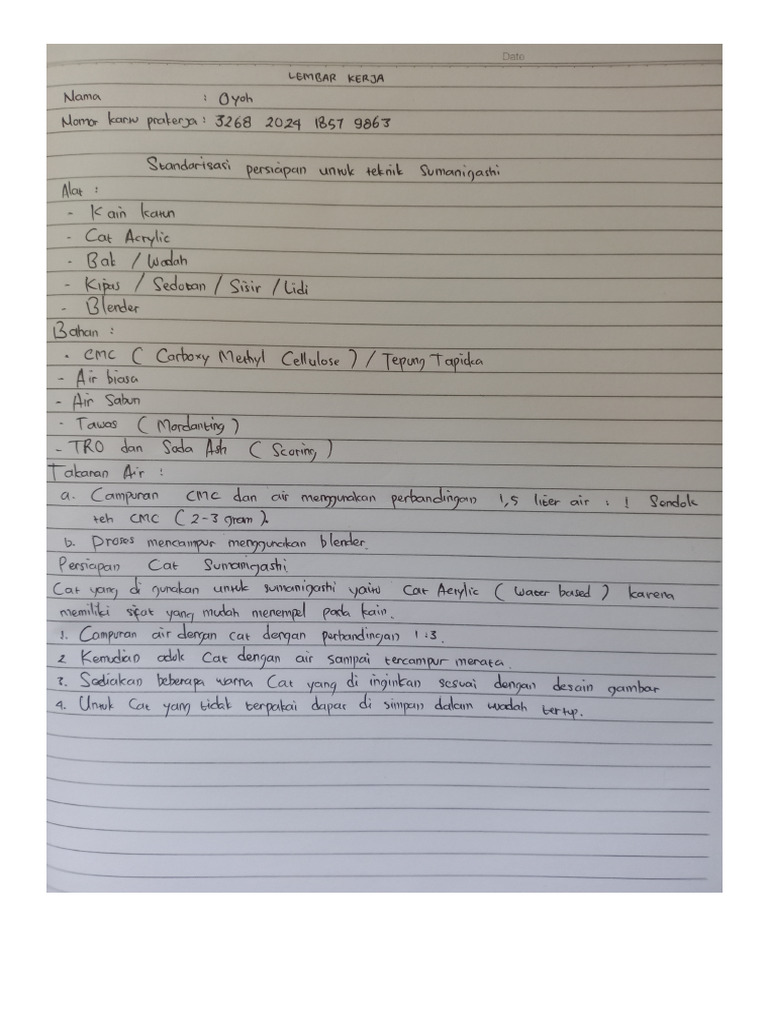 Date
LEMBAR KERJA
Nama : Oyoh
Nomor kartu prakerja : 3268 2024 1857 9863
Standarisasi persiapan untuk teknik Sumanigashi
Alat :
- Kain katun
- Cat Acrylic
- Bak / Wadah
- Kipas / Sedotan / Sisir / Lidi
- Blender
Bahan :
- CMC ( Carboxy Methyl Cellulose ) / Tepung Tapioka
- Air biasa
- Air Sabun
- Tawas ( Mordanting )
- TRO dan Soda Ash ( Scoring )
Takaran Air :
a. Campuran CMC dan air menggunakan perbandingan 1,5 liter air : 1 Sendok
teh CMC ( 2-3 gram ).
b. Proses mencampur menggunakan blender.
Persiapan Cat Sumanigashi
Cat yang di gunakan untuk sumanigashi yaitu Cat Acrylic ( Water based ) karena
memiliki sifat yang mudah menempel pada kain.
1. Campuran air dengan cat dengan perbandingan 1:3.
2. Kemudian aduk Cat dengan air sampai tercampur merata.
3. Sediakan beberapa warna Cat yang di inginkan sesuai dengan desain gambar
4. Untuk Cat yang tidak terpakai dapat di simpan dalam wadah tertup.